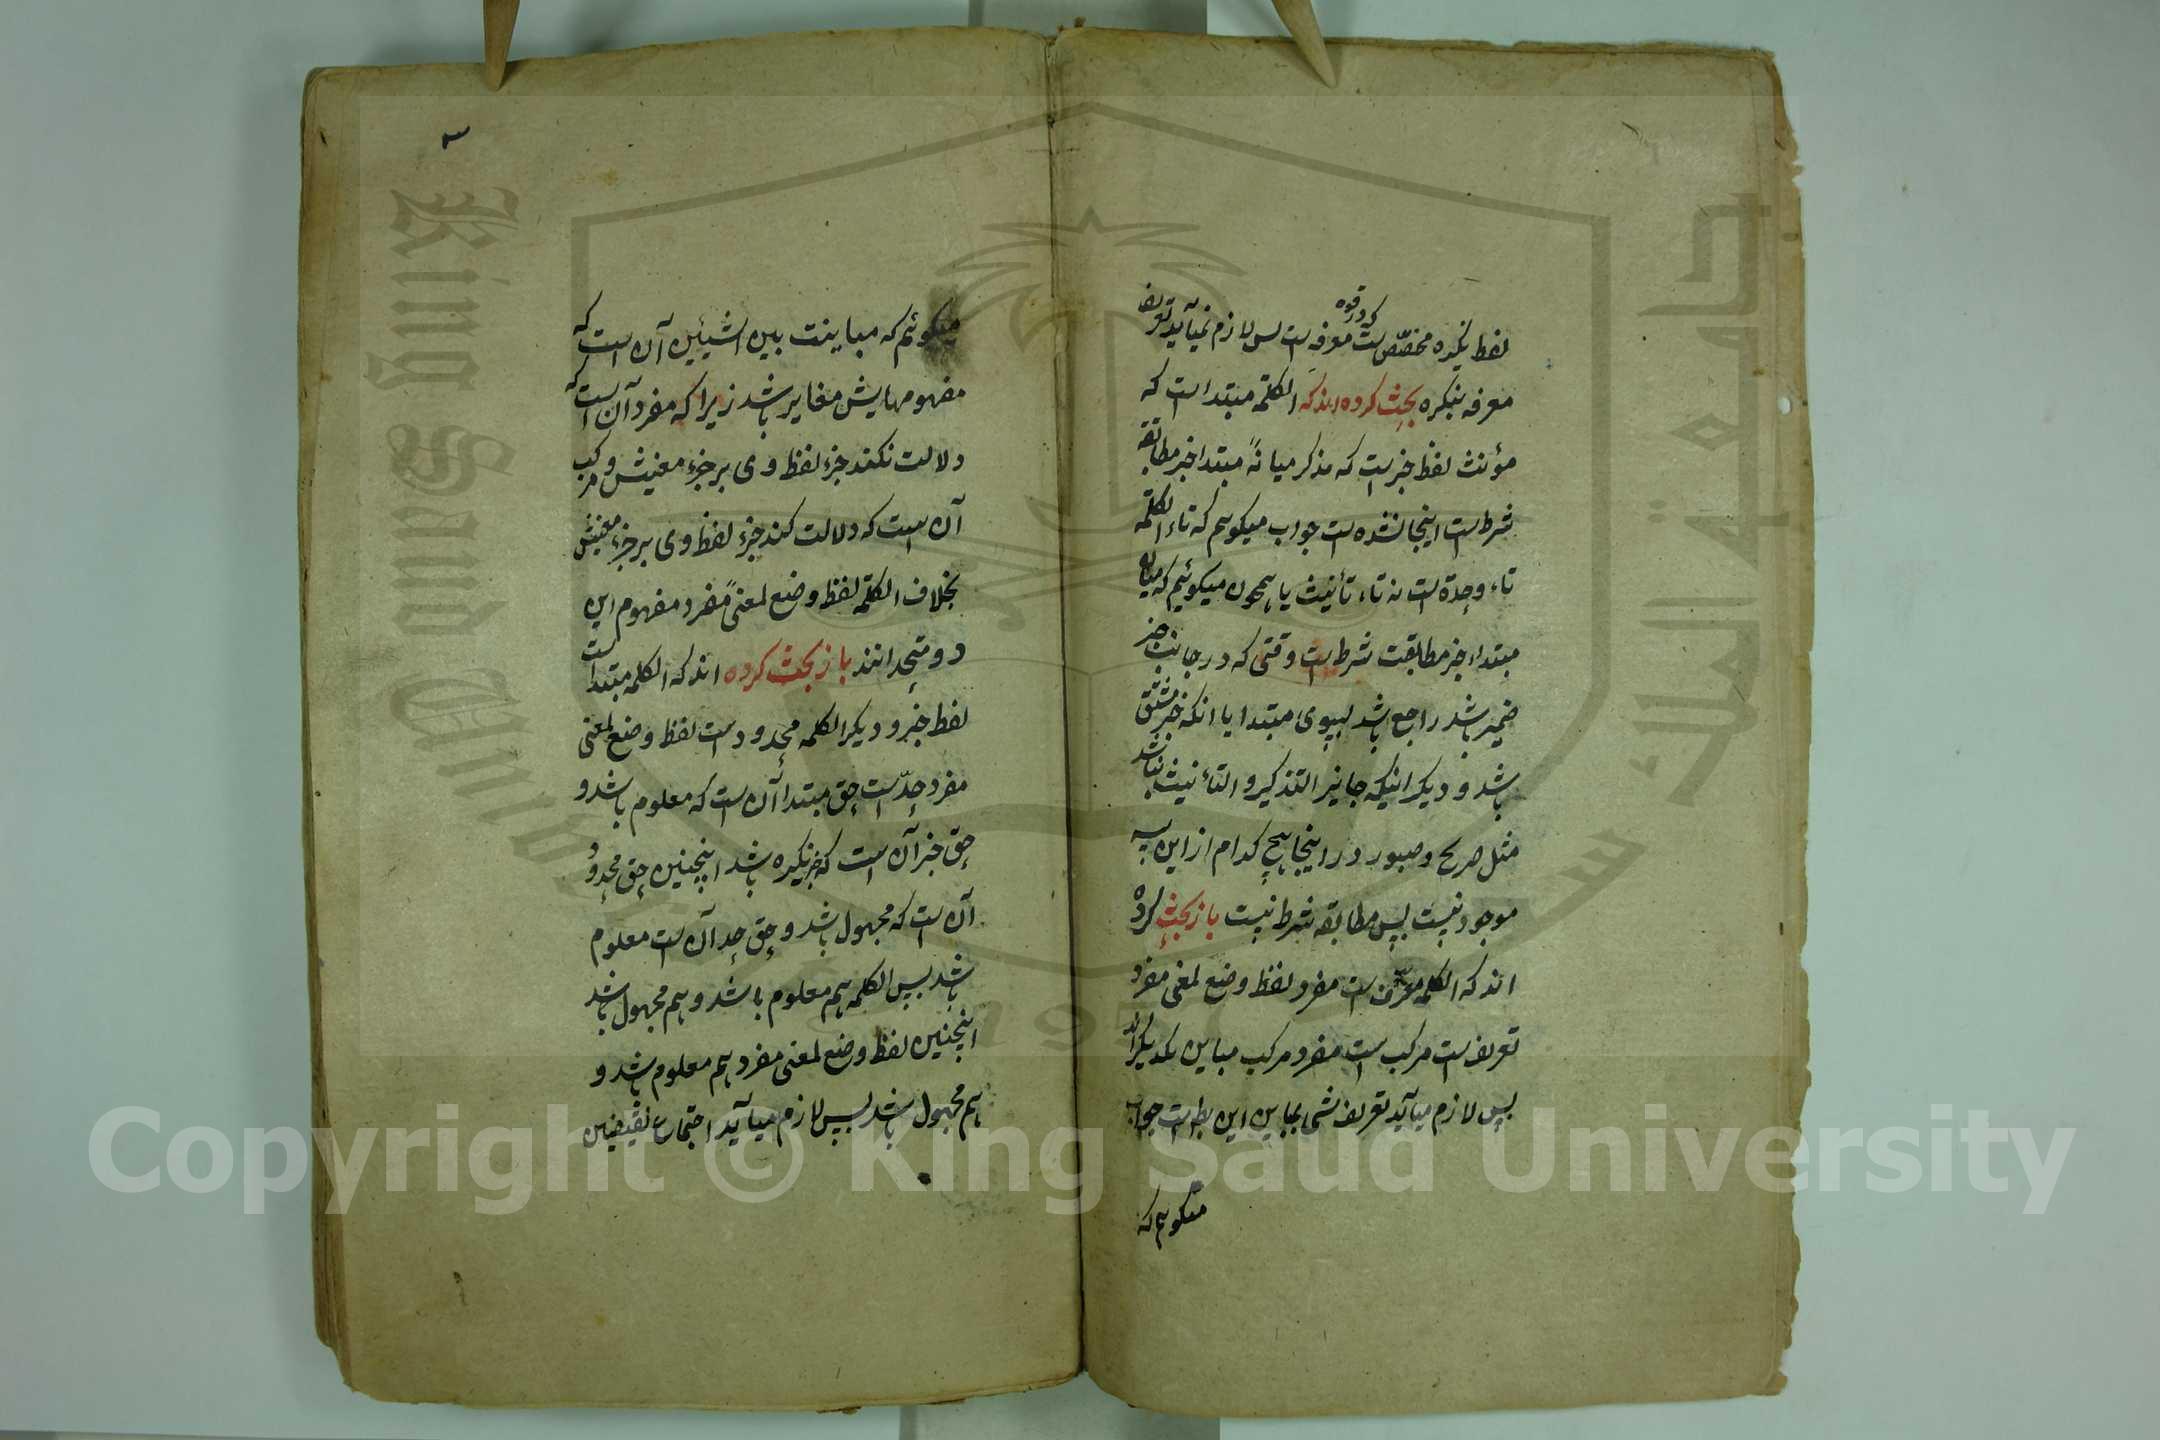 لفظ نکره مخصّص است که در قوه معرفه است پس لازم نمیآید تعریف
معرفه بنکره بحث کرده اند که الکلمة مبتدا است که
مؤنث لفظ خبر است که مذکر میانهٔ مبتدا خبر مطابقة
شرط است اینجا نشده است جواب میکوئیم که تاء الکلمة
تاء وحدة است نه تاء تأنیث یا همچون میکوئیم که میان
مبتداء خبر مطابقت شرط است وقتی که در جانب خبر
ضمیر باشد راجع باشد بسوی مبتدا یا انکه خبر مشتق
باشد و دیکر اینکه جانیز التذکیر و التأنیث نباشد
مثل صریح و صبور در اینجا هیچ کدام از این سه
موجود نیست پس مطابقه شرط نیست باز بحث کرده
اند که الکلمة معرّف است مفرد لفظ وضع لمعنی مفرد
تعریف است مرکب است مفرد مرکب مباین یکدیکر اند
پس لازم میآید تعریف شی بمباین این بط است جواب
میکوئیم که
۳
میکوئیم که مباینت بین الشیئین آن است که
مفهومهایش مغایر باشد زیرا که مفرد آن است که
دلالت نکند جزء لفظ وی بر جزء معنیش و مرکب
آن است که دلالت کند جزء لفظ وی بر جزء معنیش
بخلاف الکلمة لفظ وضع لمعنیً مفرد مفهوم این
دو متحد انند باز بحث کرده اند که الکلمه مبتدا است
لفظ خبر و دیکر الکلمه محدود است لفظ وضع لمعنی
مفرد حدّ است حق مبتدا آن است که معلوم باشد و
حق خبر آن است که خبر نکره باشد اینچنین حق محدود
آن است که مجهول باشد و حق حد آن است معلوم
باشد پس الکلمه هم معلوم باشد و هم مجهول باشد
اینچنین لفظ وضع لمعنی مفرد هم معلوم باشد و
هم مجهول باشد پس لازم میآید اجتماع نقیضین
King Saud University
Copyright © King Saud University
1957